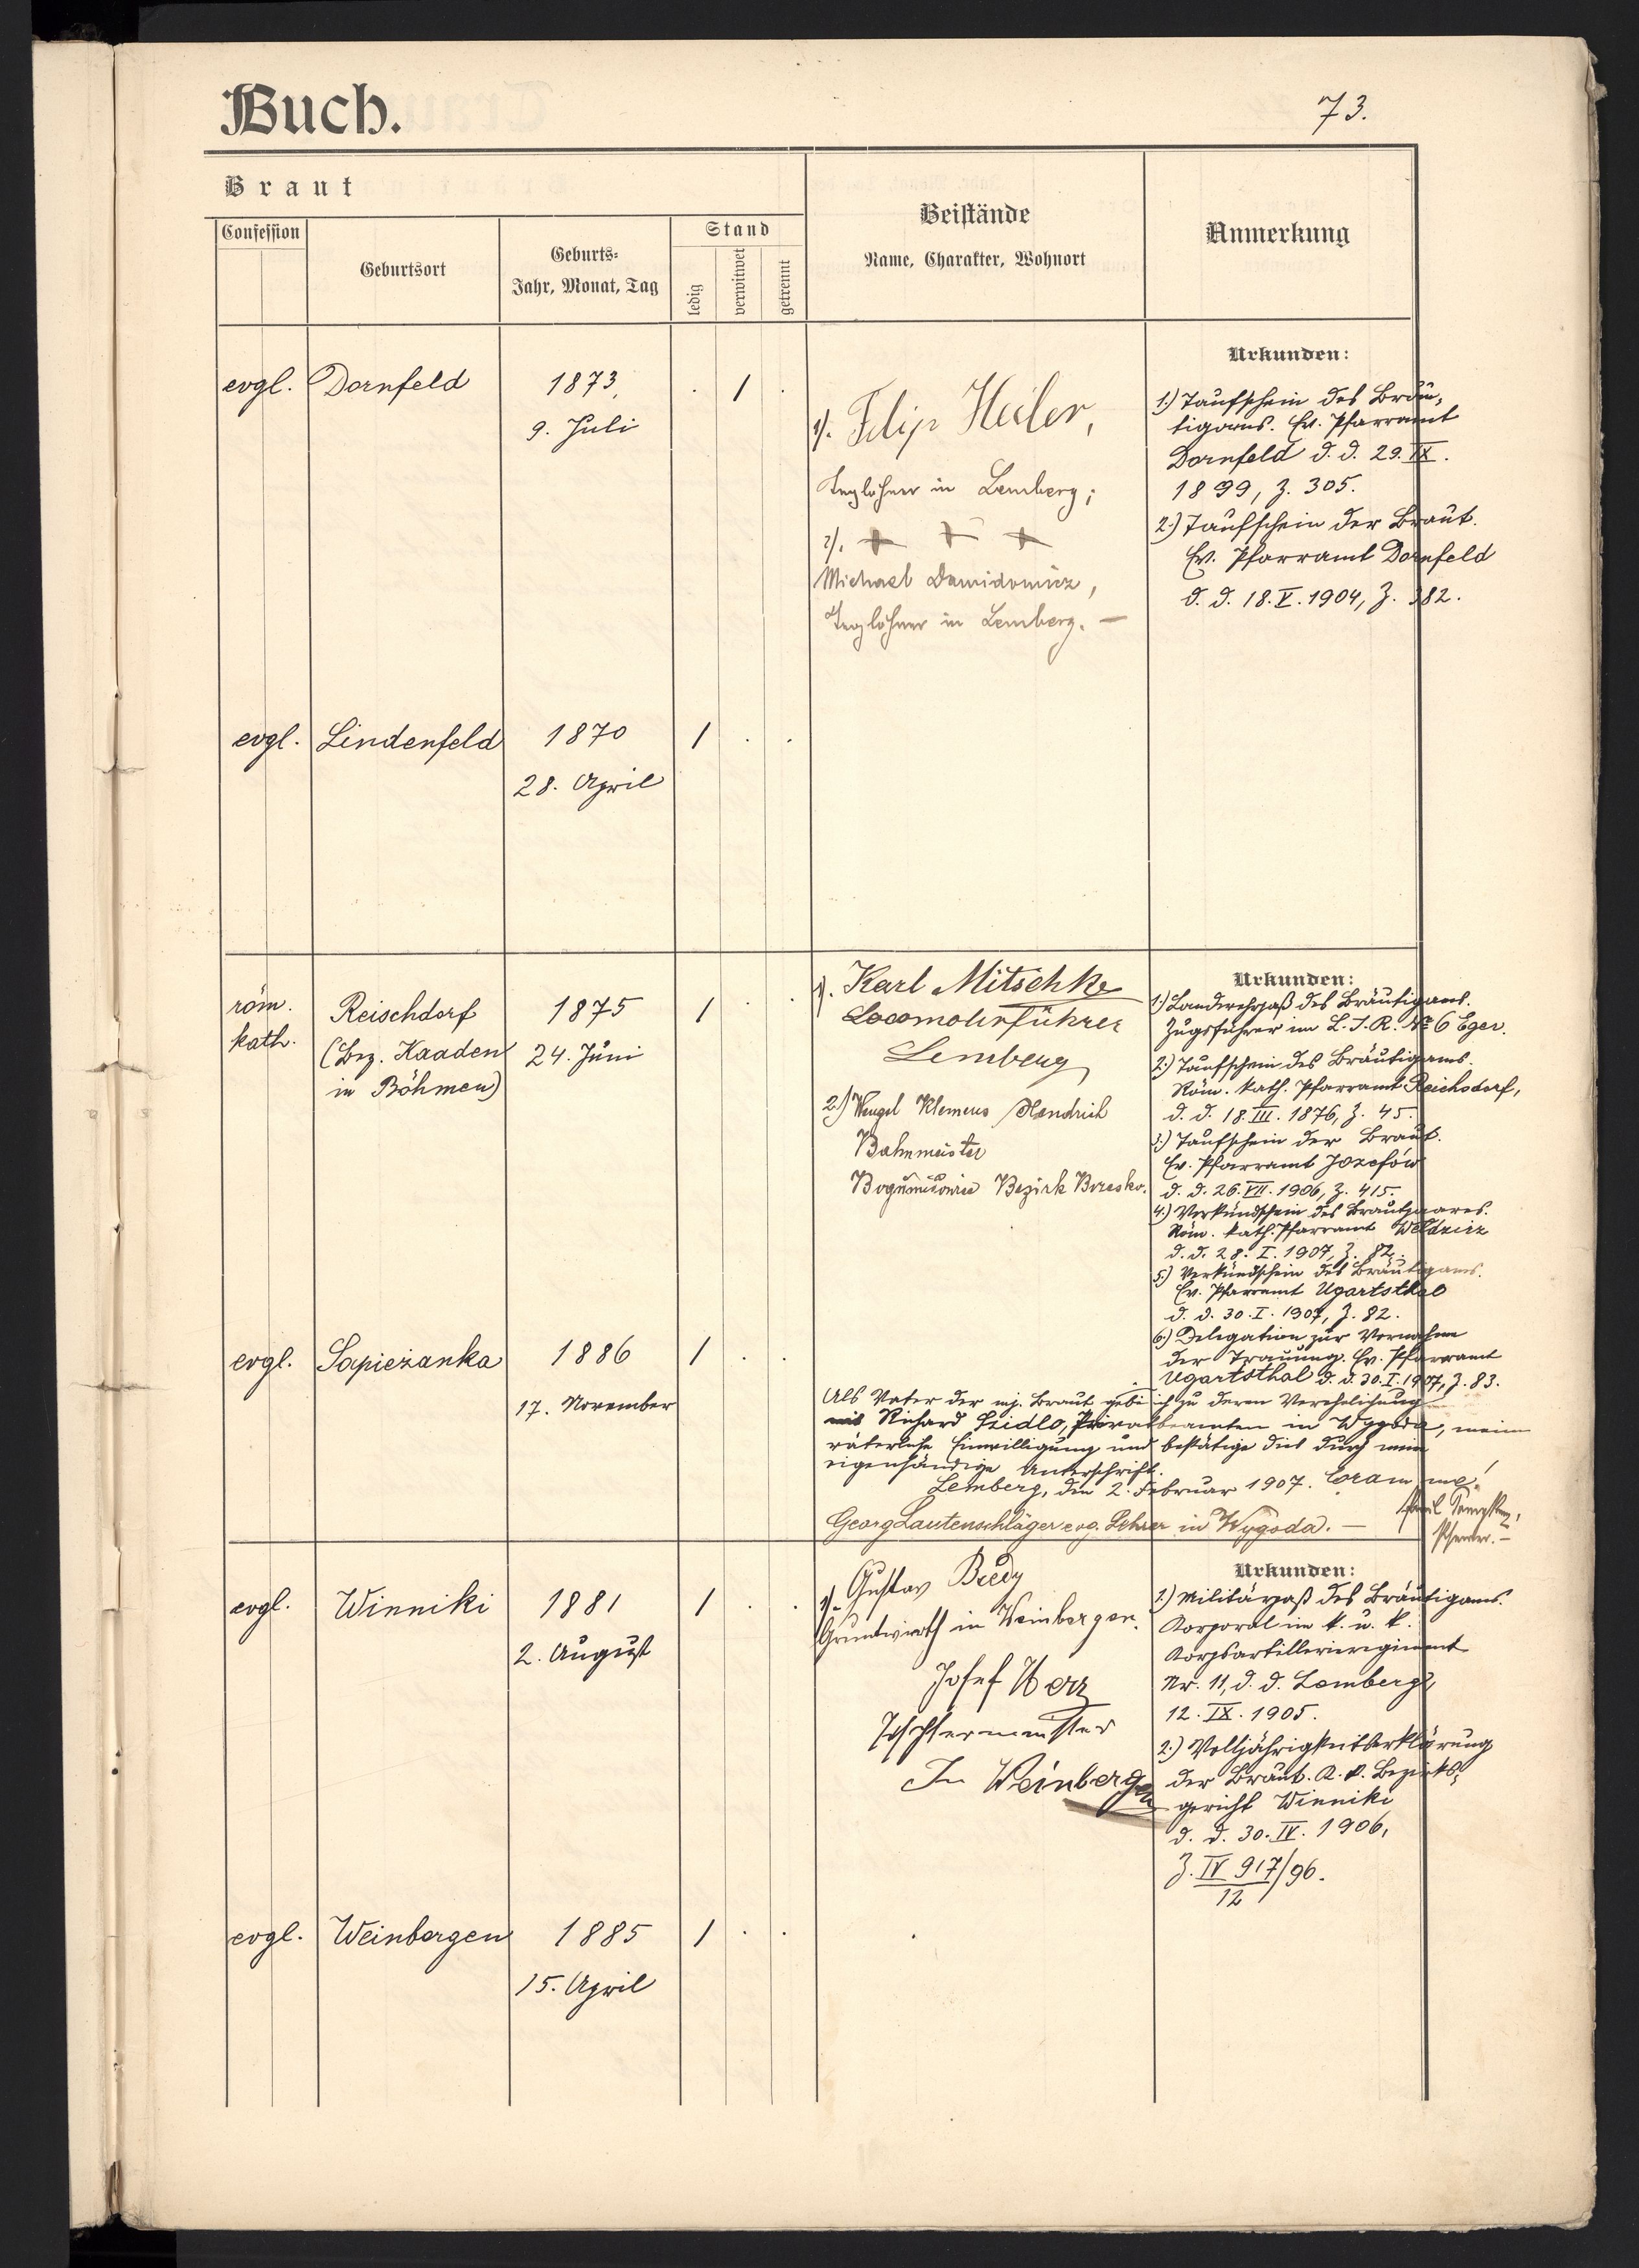 Buch.
73.
Braut
Confession
Geburtsort
Geburts-
Jahr, Monat, Tag
Stand
ledig
verwitwet
getrennt
Beistände
Name, Charakter, Wohnort
Anmerkung
evgl.
Dornfeld
1873,
9. Juli
. / .
1). Filip Heiler,
Taglöhner in Lemberg;
2). + + +
Michael Dawidowicz,
Taglöhner in Lemberg. —
Urkunden:
1.) Taufschein des Bräu-
tigams. Ev. Pfarramt
Dornfeld d. d. 29. IX.
1899, Z. 305.
2.) Taufschein der Braut.
Ev. Pfarramt Dornfeld
d. d. 18. V. 1904, Z. 382.
evgl.
Lindenfeld
1870
28. April
/ . .
röm.
kath.
Reischdorf
(Bez. Kaaden
in Böhmen)
1875
24. Juni
/ . .
1). Karl Mitschke
Locomotivführer
Lemberg
2.) Wenzel Klemens Hendrich
Bahnmeister
Bogumilowice Bezirk Brzesko.
Urkunden:
1.) Landwehrpaß des Bräutigams.
Zugsführer im L. I. R. No 6 Eger.
2.) Taufschein des Bräutigams.
Röm. kath. Pfarramt Reichsdorf,
d. d. 18. III. 1876, Z. 45.
3.) Taufschein der Braut.
Ev. Pfarramt Josefów
d. d. 26. VII. 1906, Z. 415.
4.) Verkündschein des Brautpaares.
Röm. kath. Pfarramt Wełdzirz
d. d. 28. I. 1907, Z. 82.
5.) Verkündschein des Bräutigams.
Ev. Pfarramt Ugartsthal
d. d. 30. I. 1907, Z. 82.
6.) Delegation zur Vornahme
der Trauung. Ev. Pfarramt
Ugartsthal d. d. 30. I. 1907, Z. 83.
evgl.
Sapieżanka
1886
17. November
/ . .
Als Vater der mj. Braut gebe ich zu deren Verehelichung
mit Richard Szidlo, Privatbeamten in Wygoda, meine
väterliche Einwilligung und bestätige dies durch meine
eigenhändige Unterschrift.
Lemberg, den 2. Februar 1907. Coram me!
Georg Lautenschläger evg. Lehrer in Wygoda. —
Pfarrer. —
evgl.
Winniki
1881
2. August
/ . .
1). Gustav
Grundwirth in Weinbergen.
Josef Herz
Tischlermeister
In Weinbergen
Urkunden:
1.) Militärpaß des Bräutigams.
Korporal im k. u. k.
Korpsartillerieregiment
Nr. 11, d. d. Lemberg,
12. IX. 1905.
2.) Volljährigkeitserklärung
der Braut. K. k. Bezirks-
gericht Winniki
d. d. 30. IV. 1906,
Z. IV 917/96.
12
evgl.
Weinbergen
1885
15. April
/ . .